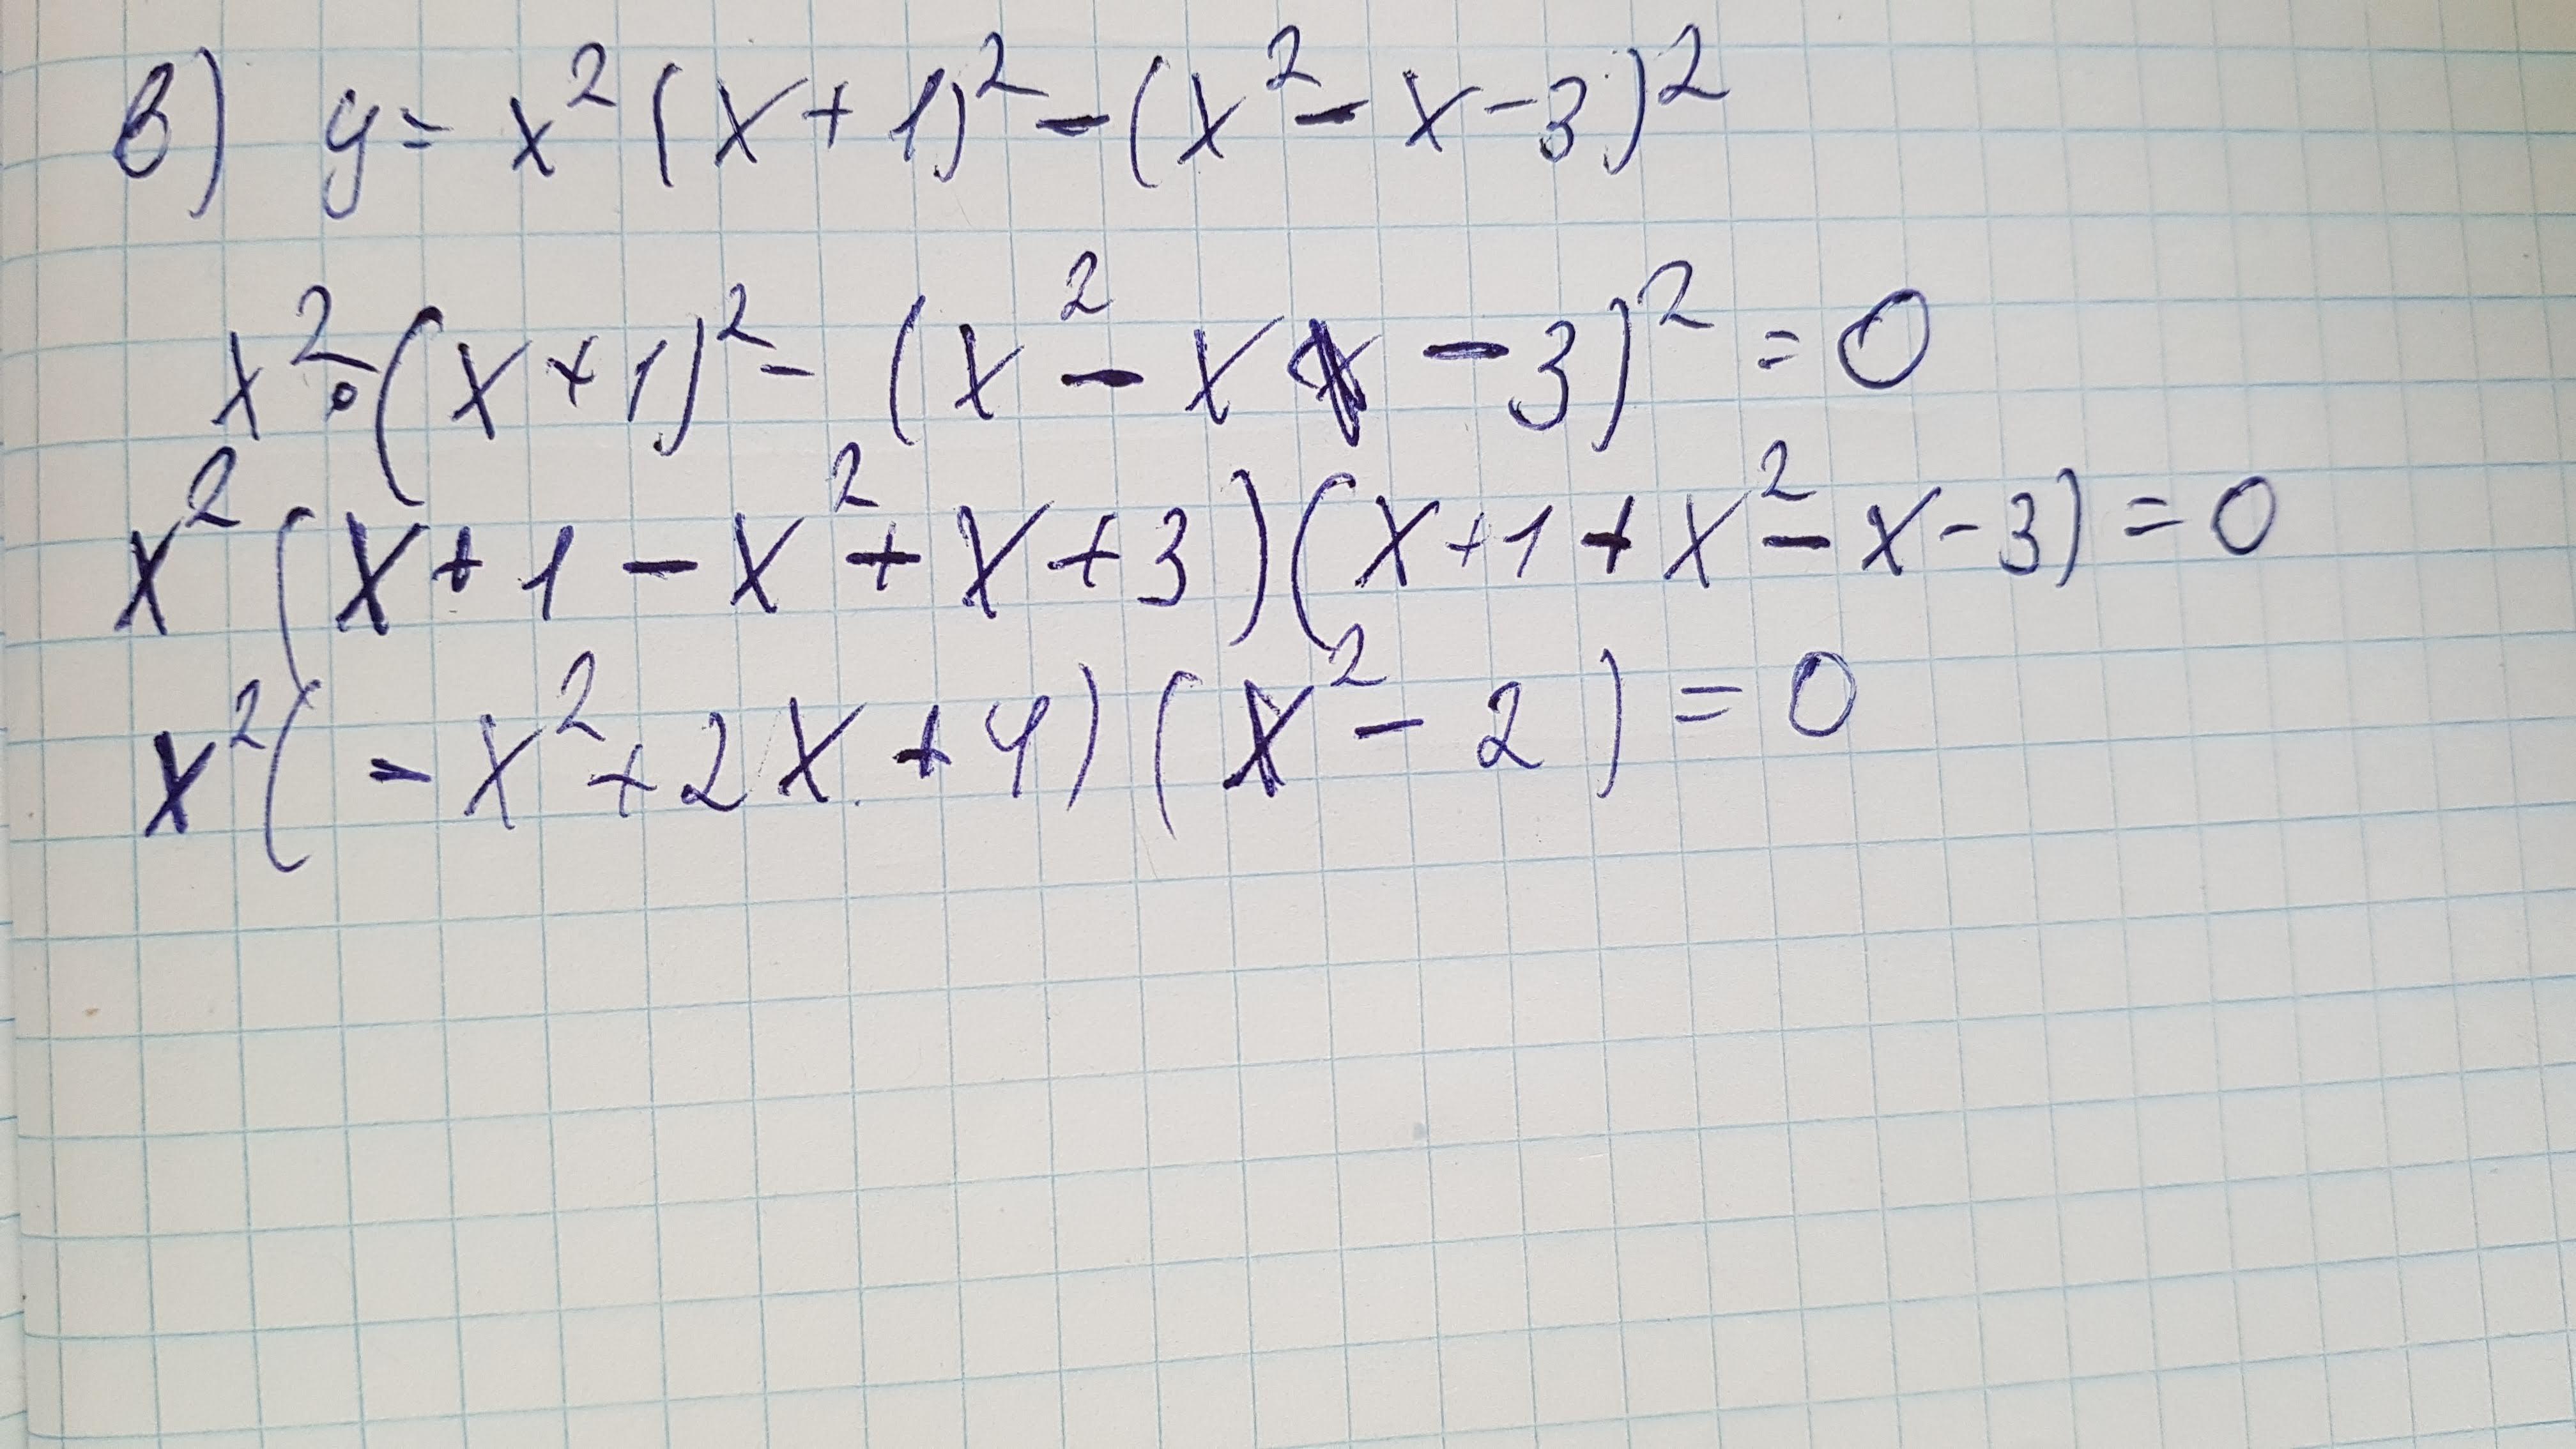 в) y = x² (x + 1)² - (x² - x - 3)²
x² · (x + 1)² - (x² - x - 3)² = 0
x² (x + 1 - x² + x + 3) (x + 1 + x² - x - 3) = 0
x² (- x² + 2x + 4) (x² - 2) = 0